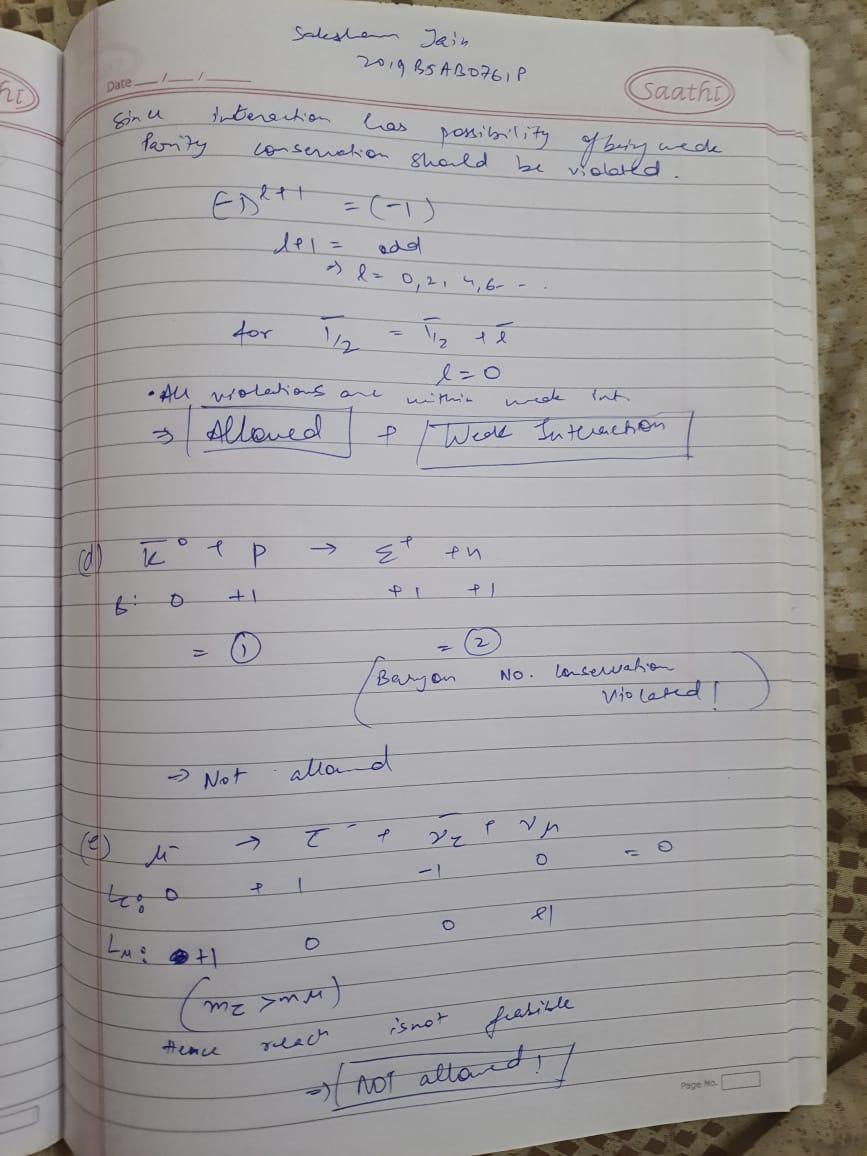 Saksham Jain
2019B5AB0761P
Date __/__/____
saathi
Since interaction has possibility of being weak
Parity conservation should be violated.
(-1)^{l+1} = (-1)
l+1 = odd
⇒ l = 0, 2, 4, 6- - .
for 1/2 = 1/2 + l
l = 0
• All violations are within weak int.
⇒ Allowed + Weak Interaction
(d) K̄⁰ + p → Σ⁺ + n
B: 0 +1 +1 +1
= 1 = 2
(Baryon No. Conservation
violated!)
→ Not allowed
(e) μ⁻ → τ⁻ + ν̄τ + νμ
Lτ: 0 +1 -1 0 = 0
Lμ: +1 0 0 +1
(mτ > mμ)
Hence react is not feasible
⇒ NOT allowed!
Page No.